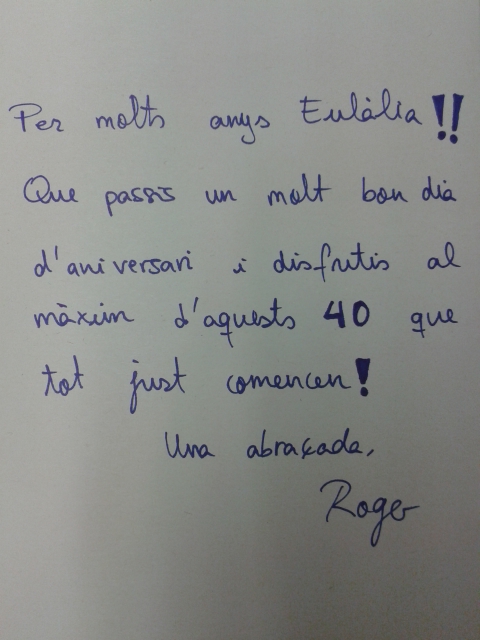 Per molts anys Eulàlia!!
Que passis un molt bon dia
d'aniversari i disfrutis al
màxim d'aquests 40 que
tot just comencen!
Una abraçada,
Roger